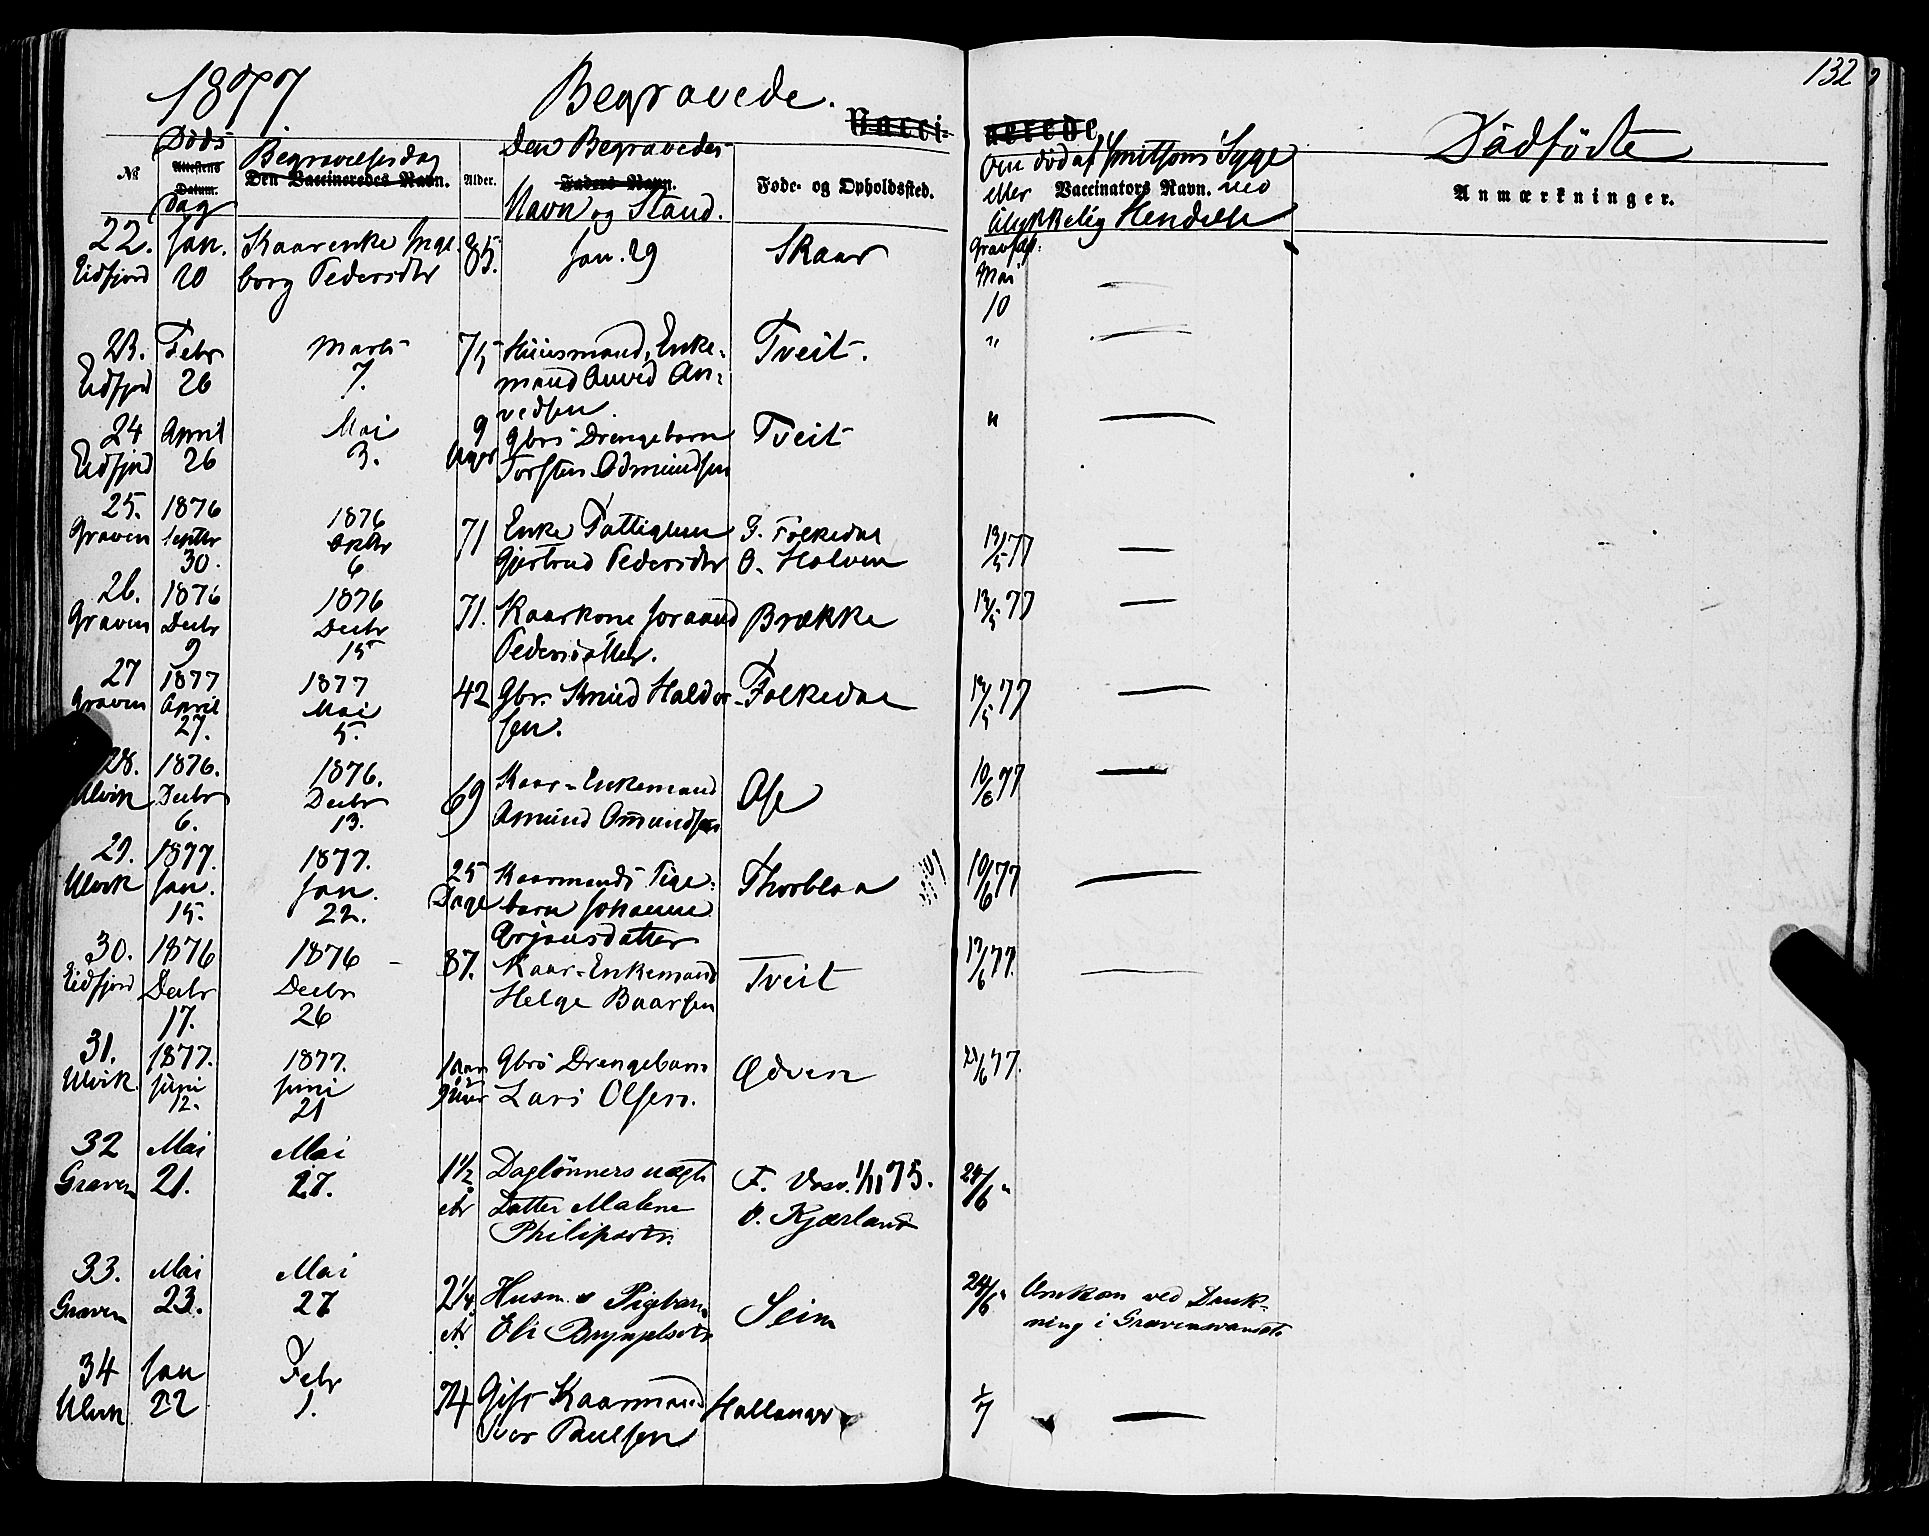 132
1877 Begravede. Vacci- nerede Dödfödte
№ Döds Attestens Datum. dag Begravelsesdag Den Vaccineredes Navn. Alder. Den Begravedes Faders Navn. Navn og Stand. Føde- og Opholdssted. Om död af smitsom Syge eller Vaccinators Navn. ved Ulykkelig Hendelse Anmærkninger.
22. Jan. Kaarenke Inge- 85. Jan. 29 Skaar Gravfæst:
Eidfjord 20 borg Pedersdtr Mai —
10
23. Febr Marts 75 Huusmand, Enke- Tveit. " —
Eidfjord 26 7. mand Anved An-
vedsen.
24 April Mai 9 Gbrs Drengebarn Tveit " —
Eidfjord 26 3. Uger Torsten Odmundsen
25. 1876 1876 71 Enke Fattiglem F. Folkedal 13/5 77 —
Graven Septbr Oktbr Gjertrud Pedersdtr O. Holven
30. 6
26. 1876 1876 71. Kaarkone Joraand Brække 13/5 77 —
Graven Decbr Decbr Pedersdatter.
9 15
27 1877 1877 42 Gbr. Knud Haldor- Folkedal 13/5 77 —
Graven April Mai sen.
27. 5.
28. 1876. 1876. 69 Kaar-Enkemand Ose 10/6 77 —
Ulvik Decbr Decbr Amund Omundsen
6. 13.
29. 1877. 1877. 25 Kaarmands Pige- Thorblaa 10/6 77 —
Ulvik Jan. Jan. Dage barn Johanne
15. 22. Brjansdatter
30. 1876 1876 87. Kaar-Enkemand Tveit 17/6 77. —
Eidfjord Decbr Decbr Helge Baarsen
17. 26
31. 1877. 1877. 1 Aar Gbrs Drengebarn Ødven 21/6 77.
Ulvik. Juni Juni Lars Olsen.
12. 21
32 Mai Mai 1½ Daglönners uægte F. Vosv. 1/11 75. 24/6 "
Graven 21. 27. Ar Datter Malene O. Kjærland
Philipsdtr.
33. Mai Mai 2¼ Husm.s Pigebarn Seim 24/6 " Omkom ved Druk-
Graven 23. 27 Ar Eli Brynjelsdtr ning i Gravensvandet
34 Jan Febr 74 Gift Kaarmand Hallanger 1/7 —
Ulvik 22 1. Ivar Paulsen